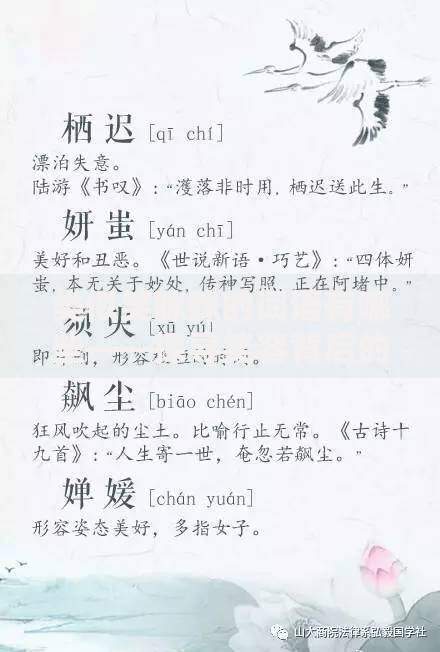 栖迟 [qī chí]
漂泊失意。
陆游《书叹》：“濩落非时用，栖迟送此生。”
妍蚩 [yán chī]
美好和丑恶。《世说新语·巧艺》：“四体妍
蚩，本无关于妙处，传神写照，正在阿堵中。”
须臾 [xū yú]
即 形容 。
飙尘 [biāo chén]
狂风吹起的尘土。比喻行止无常。《古诗十
九首》：“人生寄一世，奄忽若飙尘。”
婵媛 [chán yuán]
形容姿态美好，多指女子。
山大商院法律系弘毅国学社